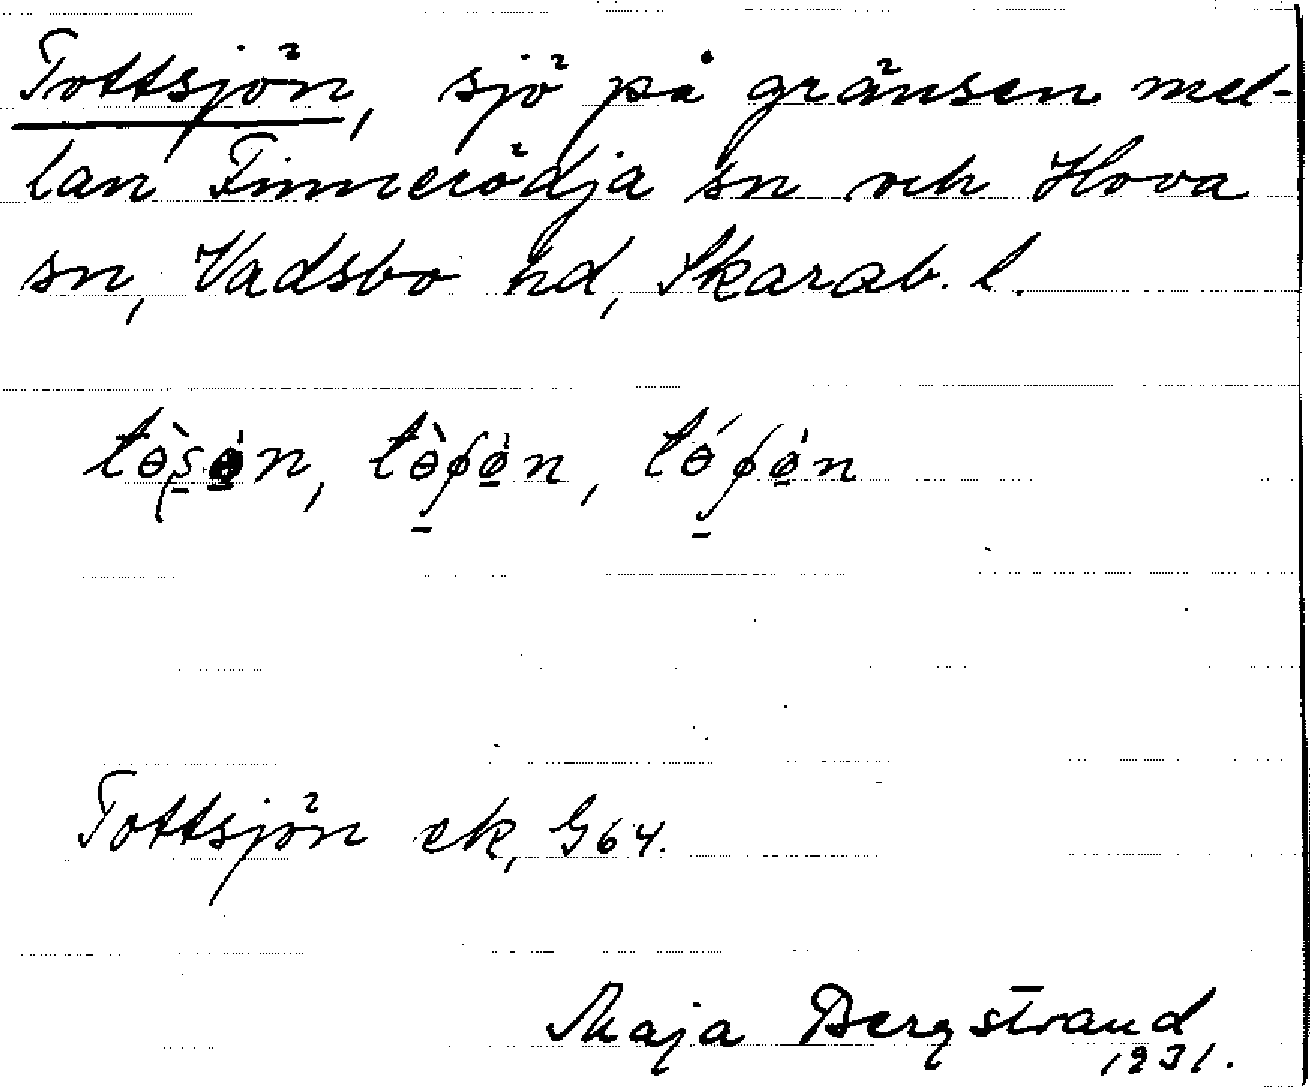 Tottsjön, sjö på gränsen mel-
lan Finnerödja sn och Hova
sn, Vadsbo hd, Skarab. l.
Tottsjön ek, G64.
Maja Bergstrand
1931.